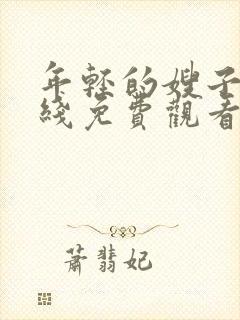 年轻的嫂子
綫免費觀看
蕭翡妃